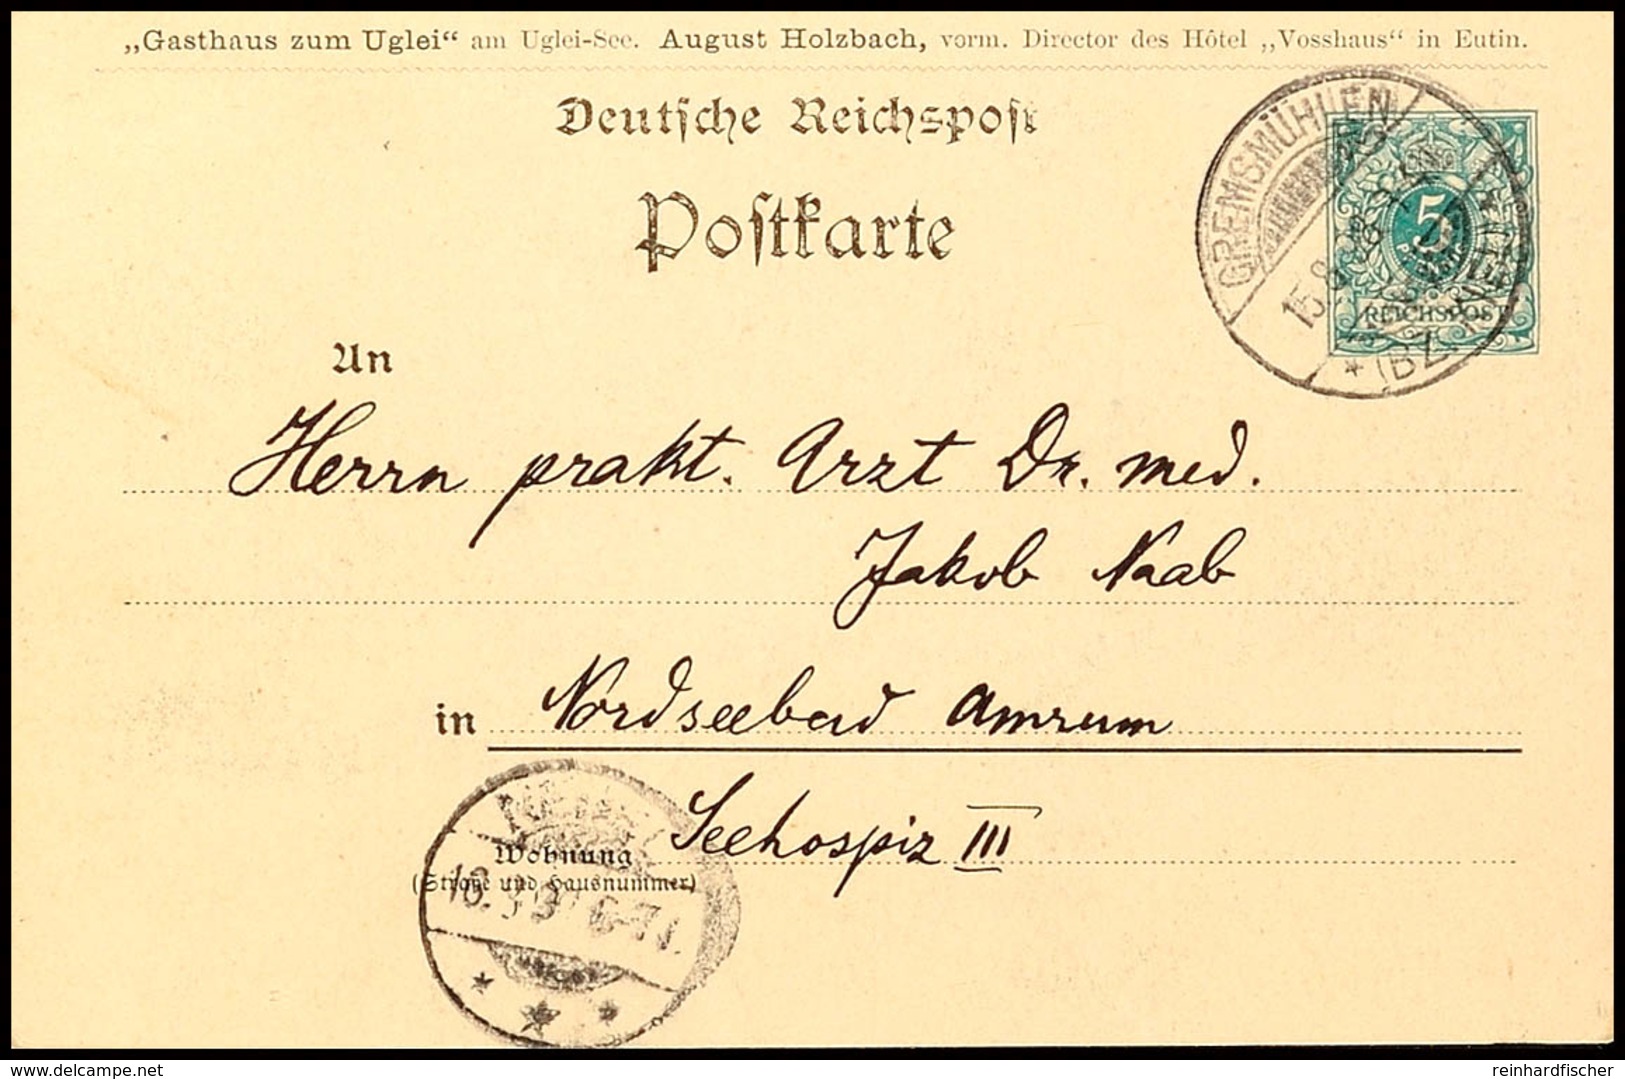 „Gasthaus zum Uglei“ am Uglei-See. August Holzbach, vorm. Director des Hôtel „Vosshaus“ in Eutin.
Deutsche Reichspost
Postkarte
GREMSMÜHLEN
15.8.98
* (BZ. KIEL) *
5
PFENNIG
REICHSPOST
An
Herrn prakt. Arzt Dr. med.
Jakob Naab
in Nordseebad Amrum
Seehospiz III
Wohnung
(Straße und Hausnummer)
16. 6-7
delcampe.net
reinhardfischer